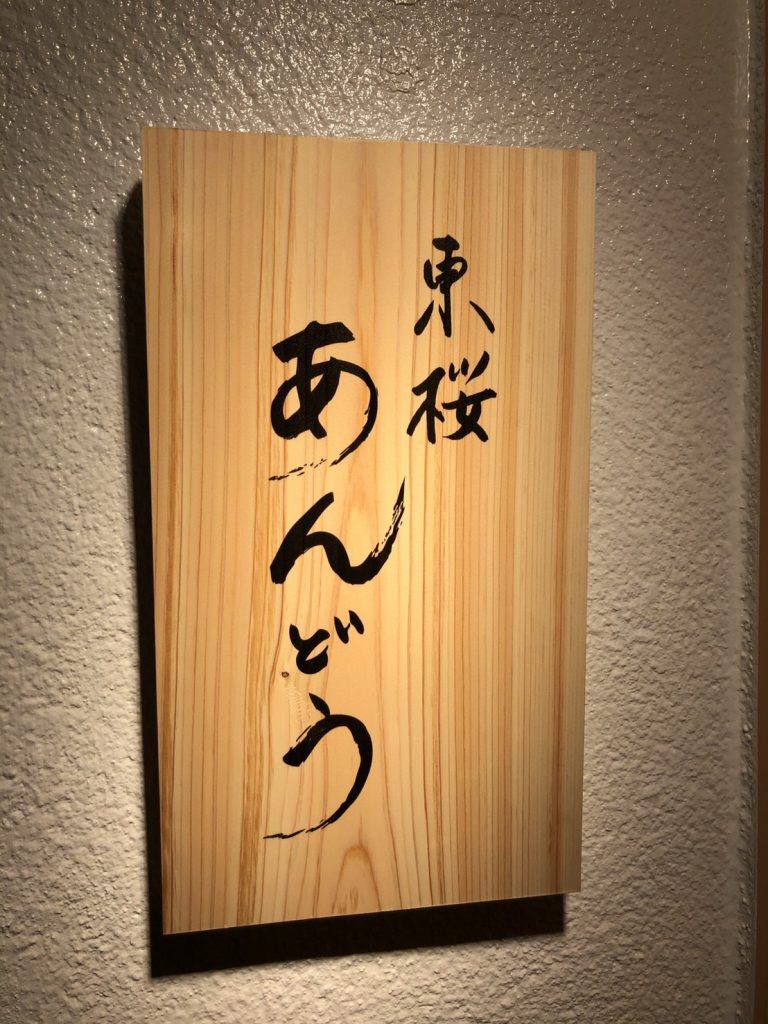 東桜
あんどう